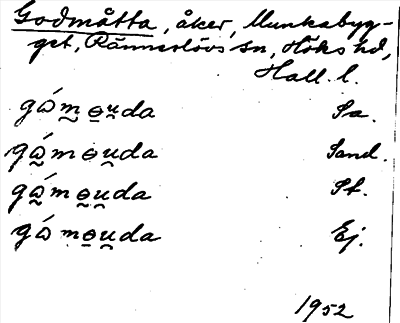 Godmåtta, åker, Munkabyg-
get, Rännerslövs sn, Höks hd,
Hall. l.
gɷ́m̰ɵ̰ṵda Sa.
gɷ̰́mɵṵda Sand.
gɷ̰́mɵ̰ṵda St.
gɷ́mɵ̰ṵda Ej.
1952